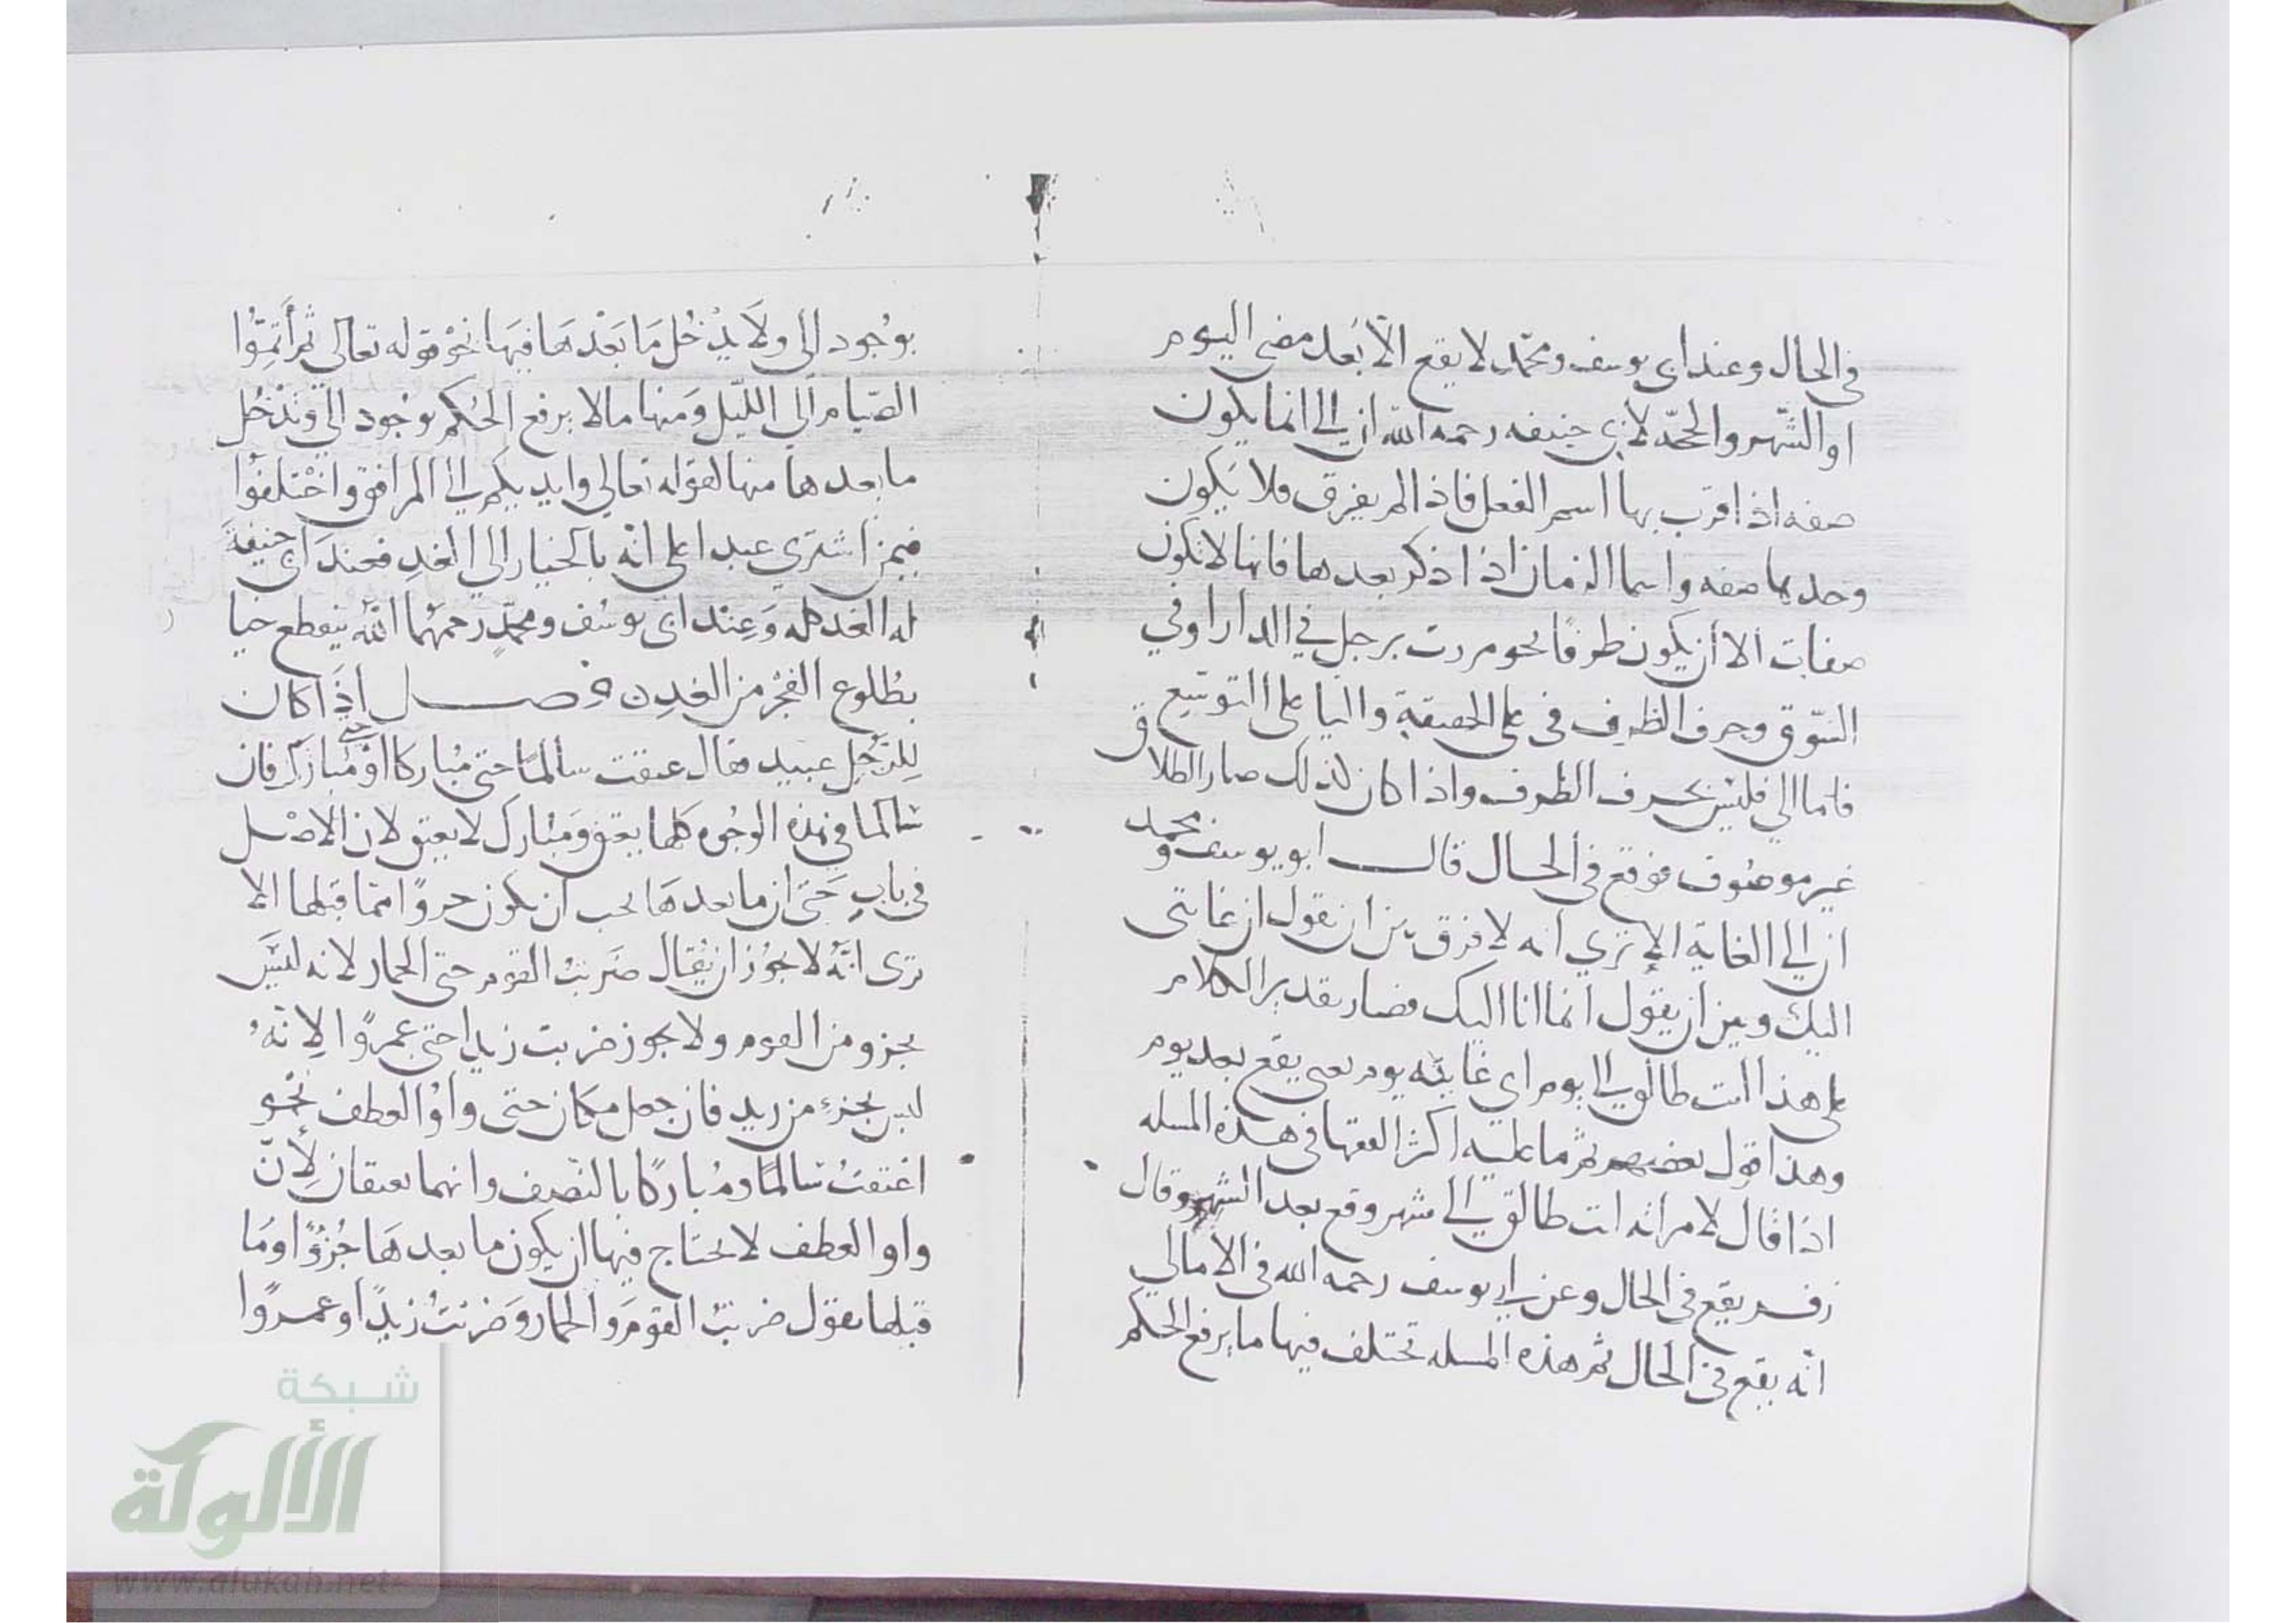 في الحال وعند ابي يوسف ومحمد لا يقع الا بعد مضي اليوم
او الشهر والحجه لابي حنيفه رحمه الله ان الى انما يكون
صفه اذا قرب بها اسم الفعل فاذا لم يفرق فلا يكون
وحدها صفه واسما الزمان اذا ذكر بعدها فانها لا تكون
صفات الا أن يكون ظرفا نحو مررت برجل في الدار او في
السوق وحرف الظرف في على الحقيقة والبا على التوسع
فاما الى فليس بحرف الظرف واذا كان لذلك صار الطلاق
غير موصوف فوقع في الحال قال ابو يوسف ومحمد
ان الى الغاية الا ترى انه لا فرق بين ان نقول ان غايتى
اليك وبين ان يقول انما انا اليك فصار تقدير الكلام
على هذا انت طالق الى يوم اي غايته يوم يعني يقع بعد يوم
وهذا قول بعضهم ثم ما عليه اكثر الفقها في هذه المسله
اذا قال لامراته انت طالق الى شهر وقع بعد الشهر وقال
زفر يقع في الحال وعن ابي يوسف رحمه الله في الامالي
انه يقع في الحال ثم هذه المسله تختلف فيها ما يرفع الحكم
بوُجود الى ولَا يدْخُل مَا بَعْدهَا فيهَا نحْو قوله تعالى ثم أَتِمّوُا
الصّيام الى اللّيل وَمنها ما لا يرفع الحُكم بوُجود الى وتدْخُل
ما بعدها منها لقوله تعالي وايديكم الى المرافق واخْتلفوُا
فيمن اشترى عبدا على انه بالخيار الي الغدِ فعندَ ابي حنيفةَ
له الغد كله وَعِند ابى يوسُف ومحمّدٍ رحمهُما اللهُ ينقطع خيا
بطُلوع الفجْر من الغدِ ن فصل اذَا كان
لِلرّجُل عبيد فقال عتقت سالمًا حتى مُباركا او حتى مُبارك فان
سَالما في هذه الوجُوه كلها يعتق وَمبُارك لا يعتق لان الاصْل
في بابِ حَتى ان ما بعدهَا يجب ان يكون جروًا مما قبلها الا
ترى انّهُ لا يجوُز ان يُقال ضَربتُ القوم حتى الحمار لانه ليسَ
بجزو من القوم ولا يجوز ضربت زيدا حتى عمروًا لانّهُ
ليس بجزء من زيد فان جعل مكان حتى واوُ العطف نحْو
اعْتقتُ سَالمًا ومُباركًا بالنّصيف وانهما يعتقان لأِنّ
واو العطف لا يحتاج فيها ان يكون ما بعدهَا جُزوًا ومَا
قبلها تقول ضربتُ القومَ والحمار وَضربْتُ زيدًا وعمروًا
شبكة
الألوكة
www.alukah.net